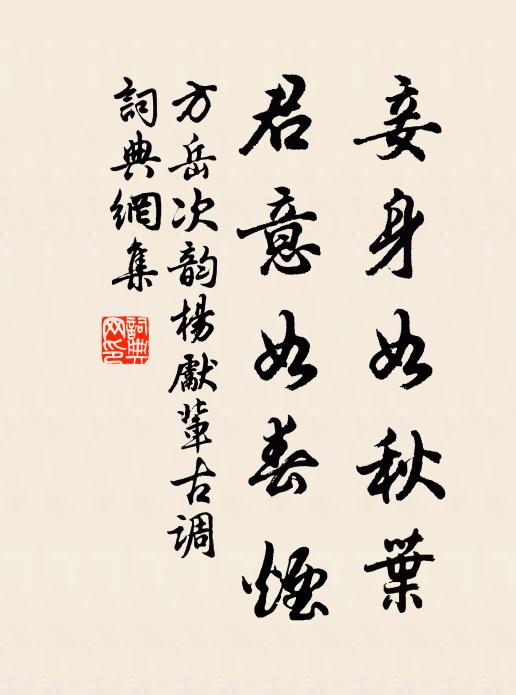 妾身如秋葉
君意如春煙
方岳次韵楊獻輩古調
詞典網集
詞典网印